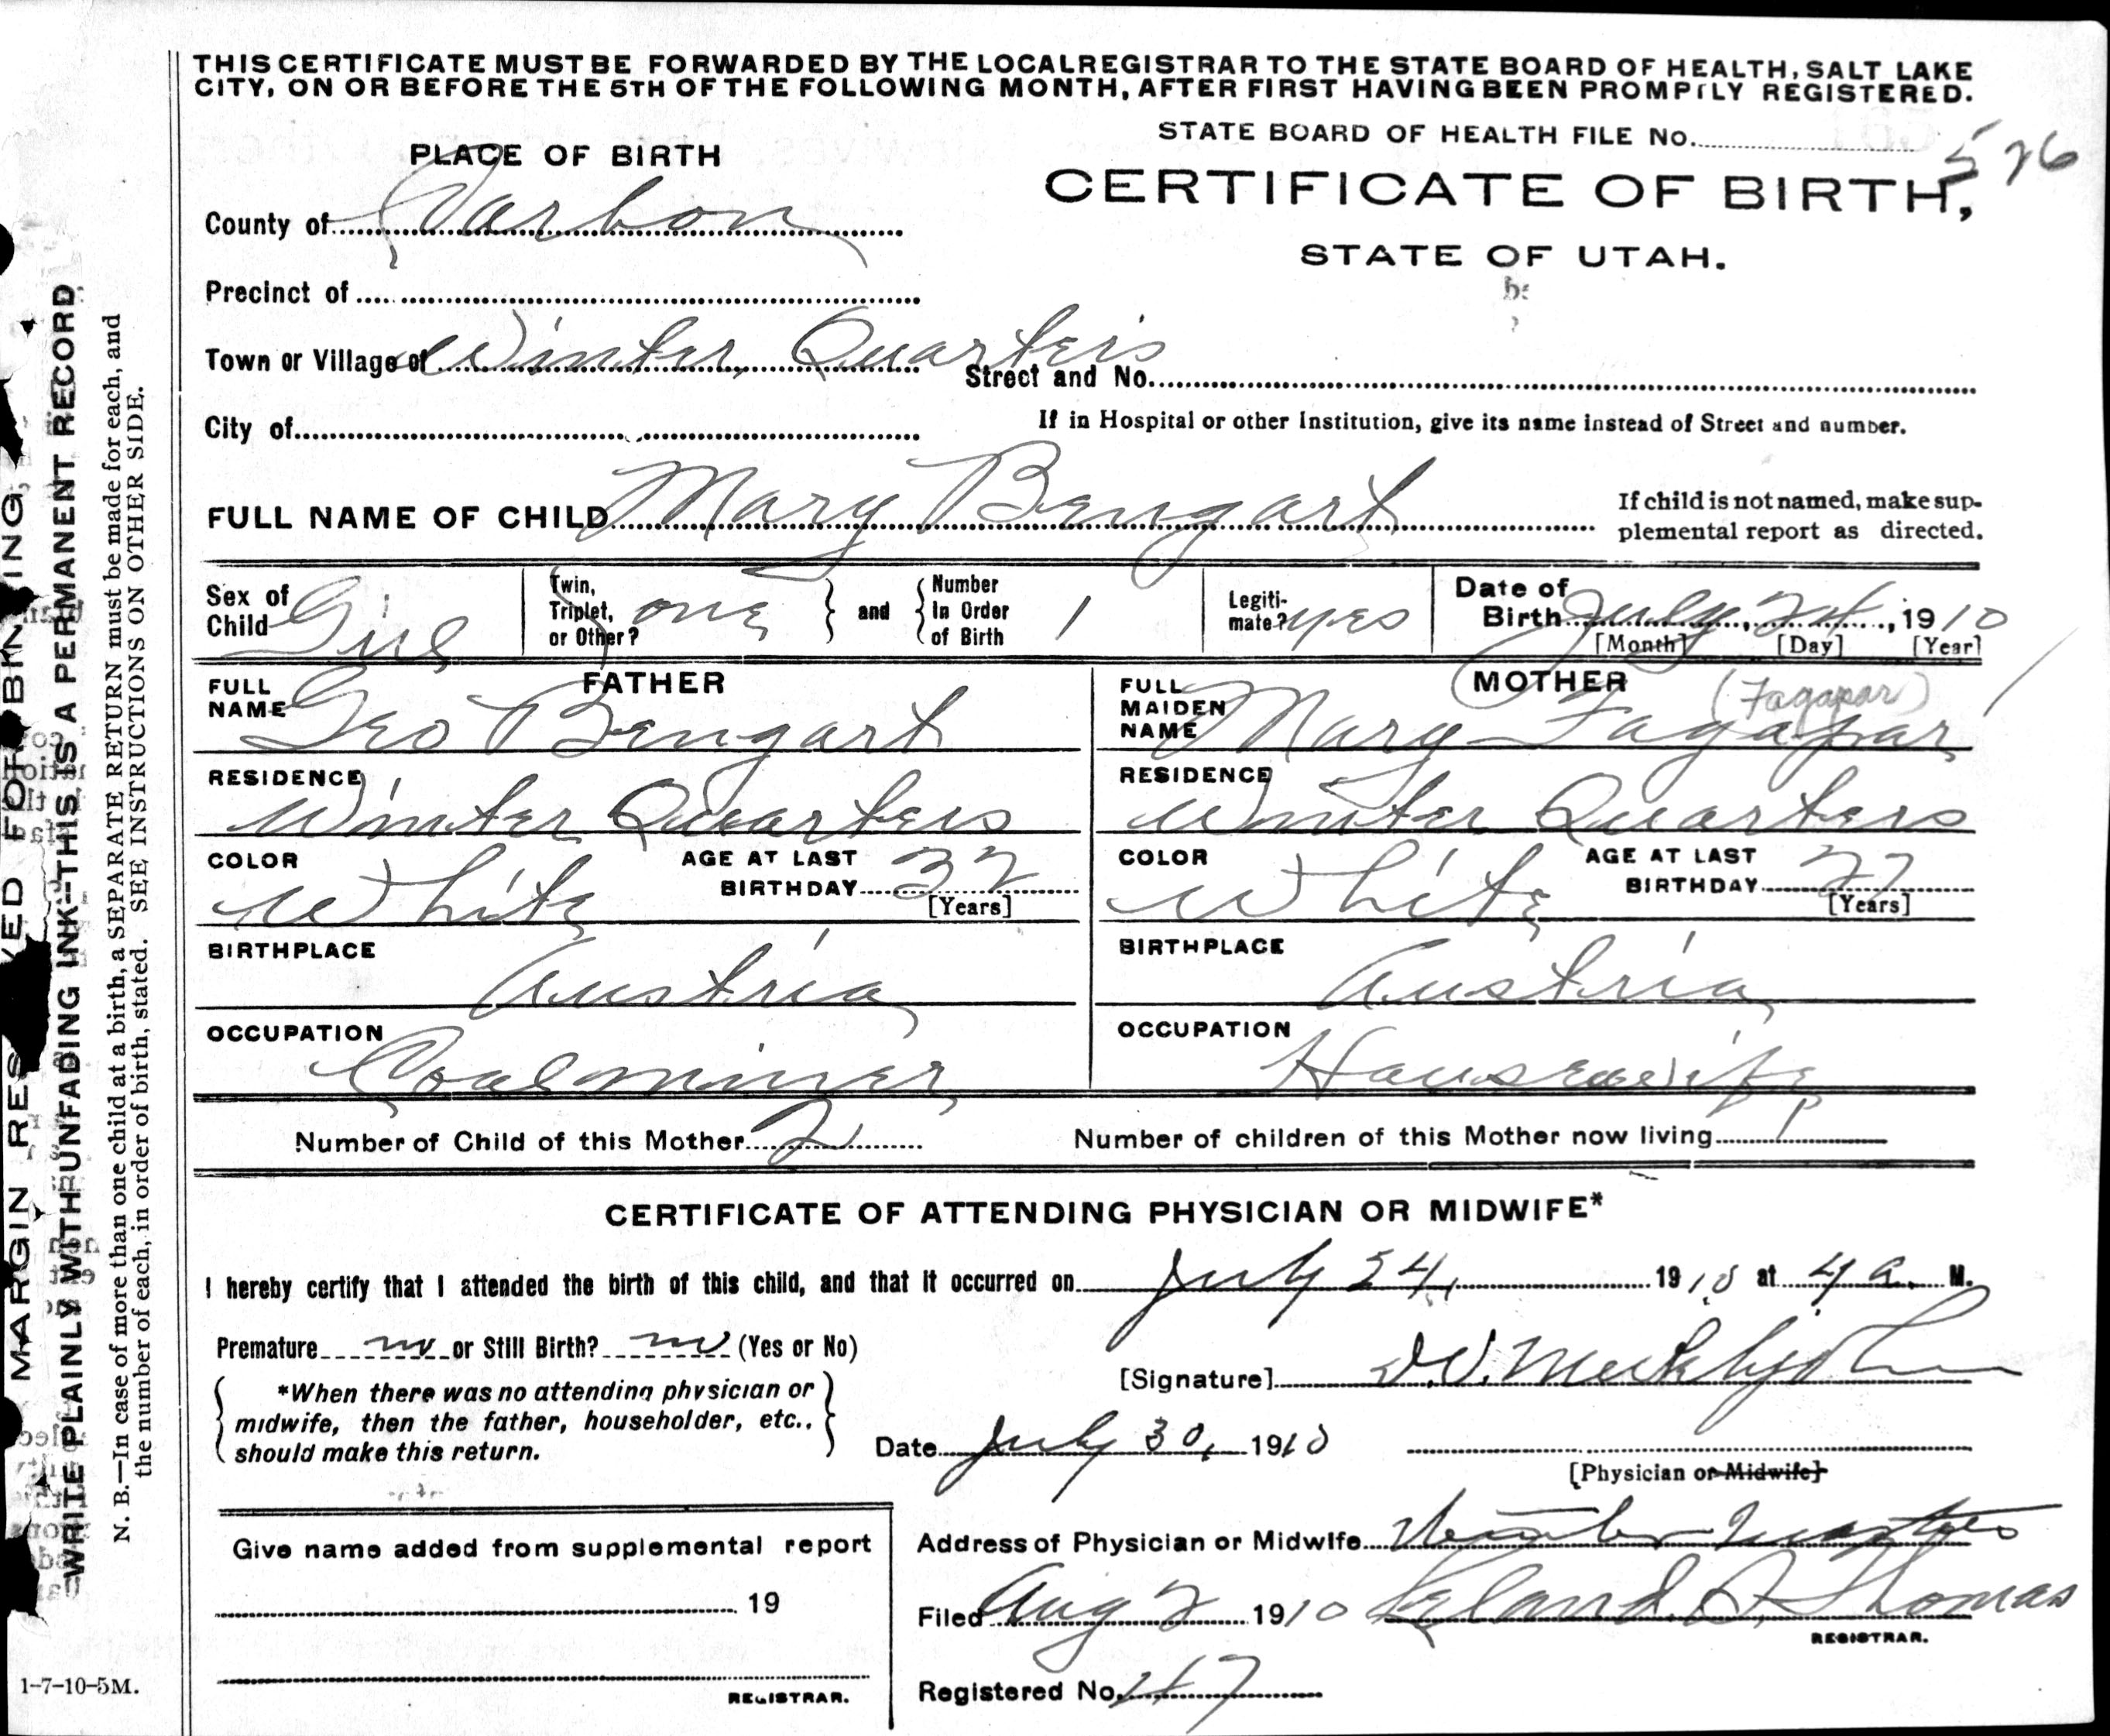 THIS CERTIFICATE MUST BE FORWARDED BY THE LOCAL REGISTRAR TO THE STATE BOARD OF HEALTH, SALT LAKE
CITY, ON OR BEFORE THE 5TH OF THE FOLLOWING MONTH, AFTER FIRST HAVING BEEN PROMPTLY REGISTERED.
STATE BOARD OF HEALTH FILE No. 526
PLACE OF BIRTH
CERTIFICATE OF BIRTH,
County of Carbon
STATE OF UTAH.
Precinct of
Town or Village of Winter Quarters
Street and No.
City of
If in Hospital or other Institution, give its name instead of Street and number.
FULL NAME OF CHILD Mary Bengart
If child is not named, make sup-
plemental report as directed.
Sex of Child Girl
Twin, Triplet, or Other? one
and
Number In Order of Birth 1
Legiti-mate? yes
Date of Birth July, 24, 1910
[Month] [Day] [Year]
FATHER
FULL NAME Geo Bengart
RESIDENCE
Winter Quarters
COLOR White
AGE AT LAST BIRTHDAY 32
[Years]
BIRTHPLACE
Austria
OCCUPATION
Coalminer
MOTHER
(Fagapar)
FULL MAIDEN NAME Mary Fagapar
RESIDENCE
Winter Quarters
COLOR White
AGE AT LAST BIRTHDAY 27
[Years]
BIRTHPLACE
Austria
OCCUPATION
Housewife
Number of Child of this Mother 2
Number of children of this Mother now living 1
CERTIFICATE OF ATTENDING PHYSICIAN OR MIDWIFE*
I hereby certify that I attended the birth of this child, and that it occurred on July 24, 1910 at 4 a. M.
Premature no or Still Birth? no (Yes or No)
*When there was no attending physician or
midwife, then the father, householder, etc.,
should make this return.
[Signature]
Date July 30, 1910
[Physician or Midwife]
Give name added from supplemental report
19
REGISTRAR.
Address of Physician or Midwife Winter Quarters
Filed Aug 2 1910 Leland. Thomas
REGISTRAR.
Registered No. 47
MARGIN RESERVED FOR BINDING,
WRITE PLAINLY WITH UNFADING INK--THIS IS A PERMANENT RECORD
N. B.—In case of more than one child at a birth, a SEPARATE RETURN must be made for each, and
the number of each, in order of birth, stated. SEE INSTRUCTIONS ON OTHER SIDE.
1-7-10-5M.